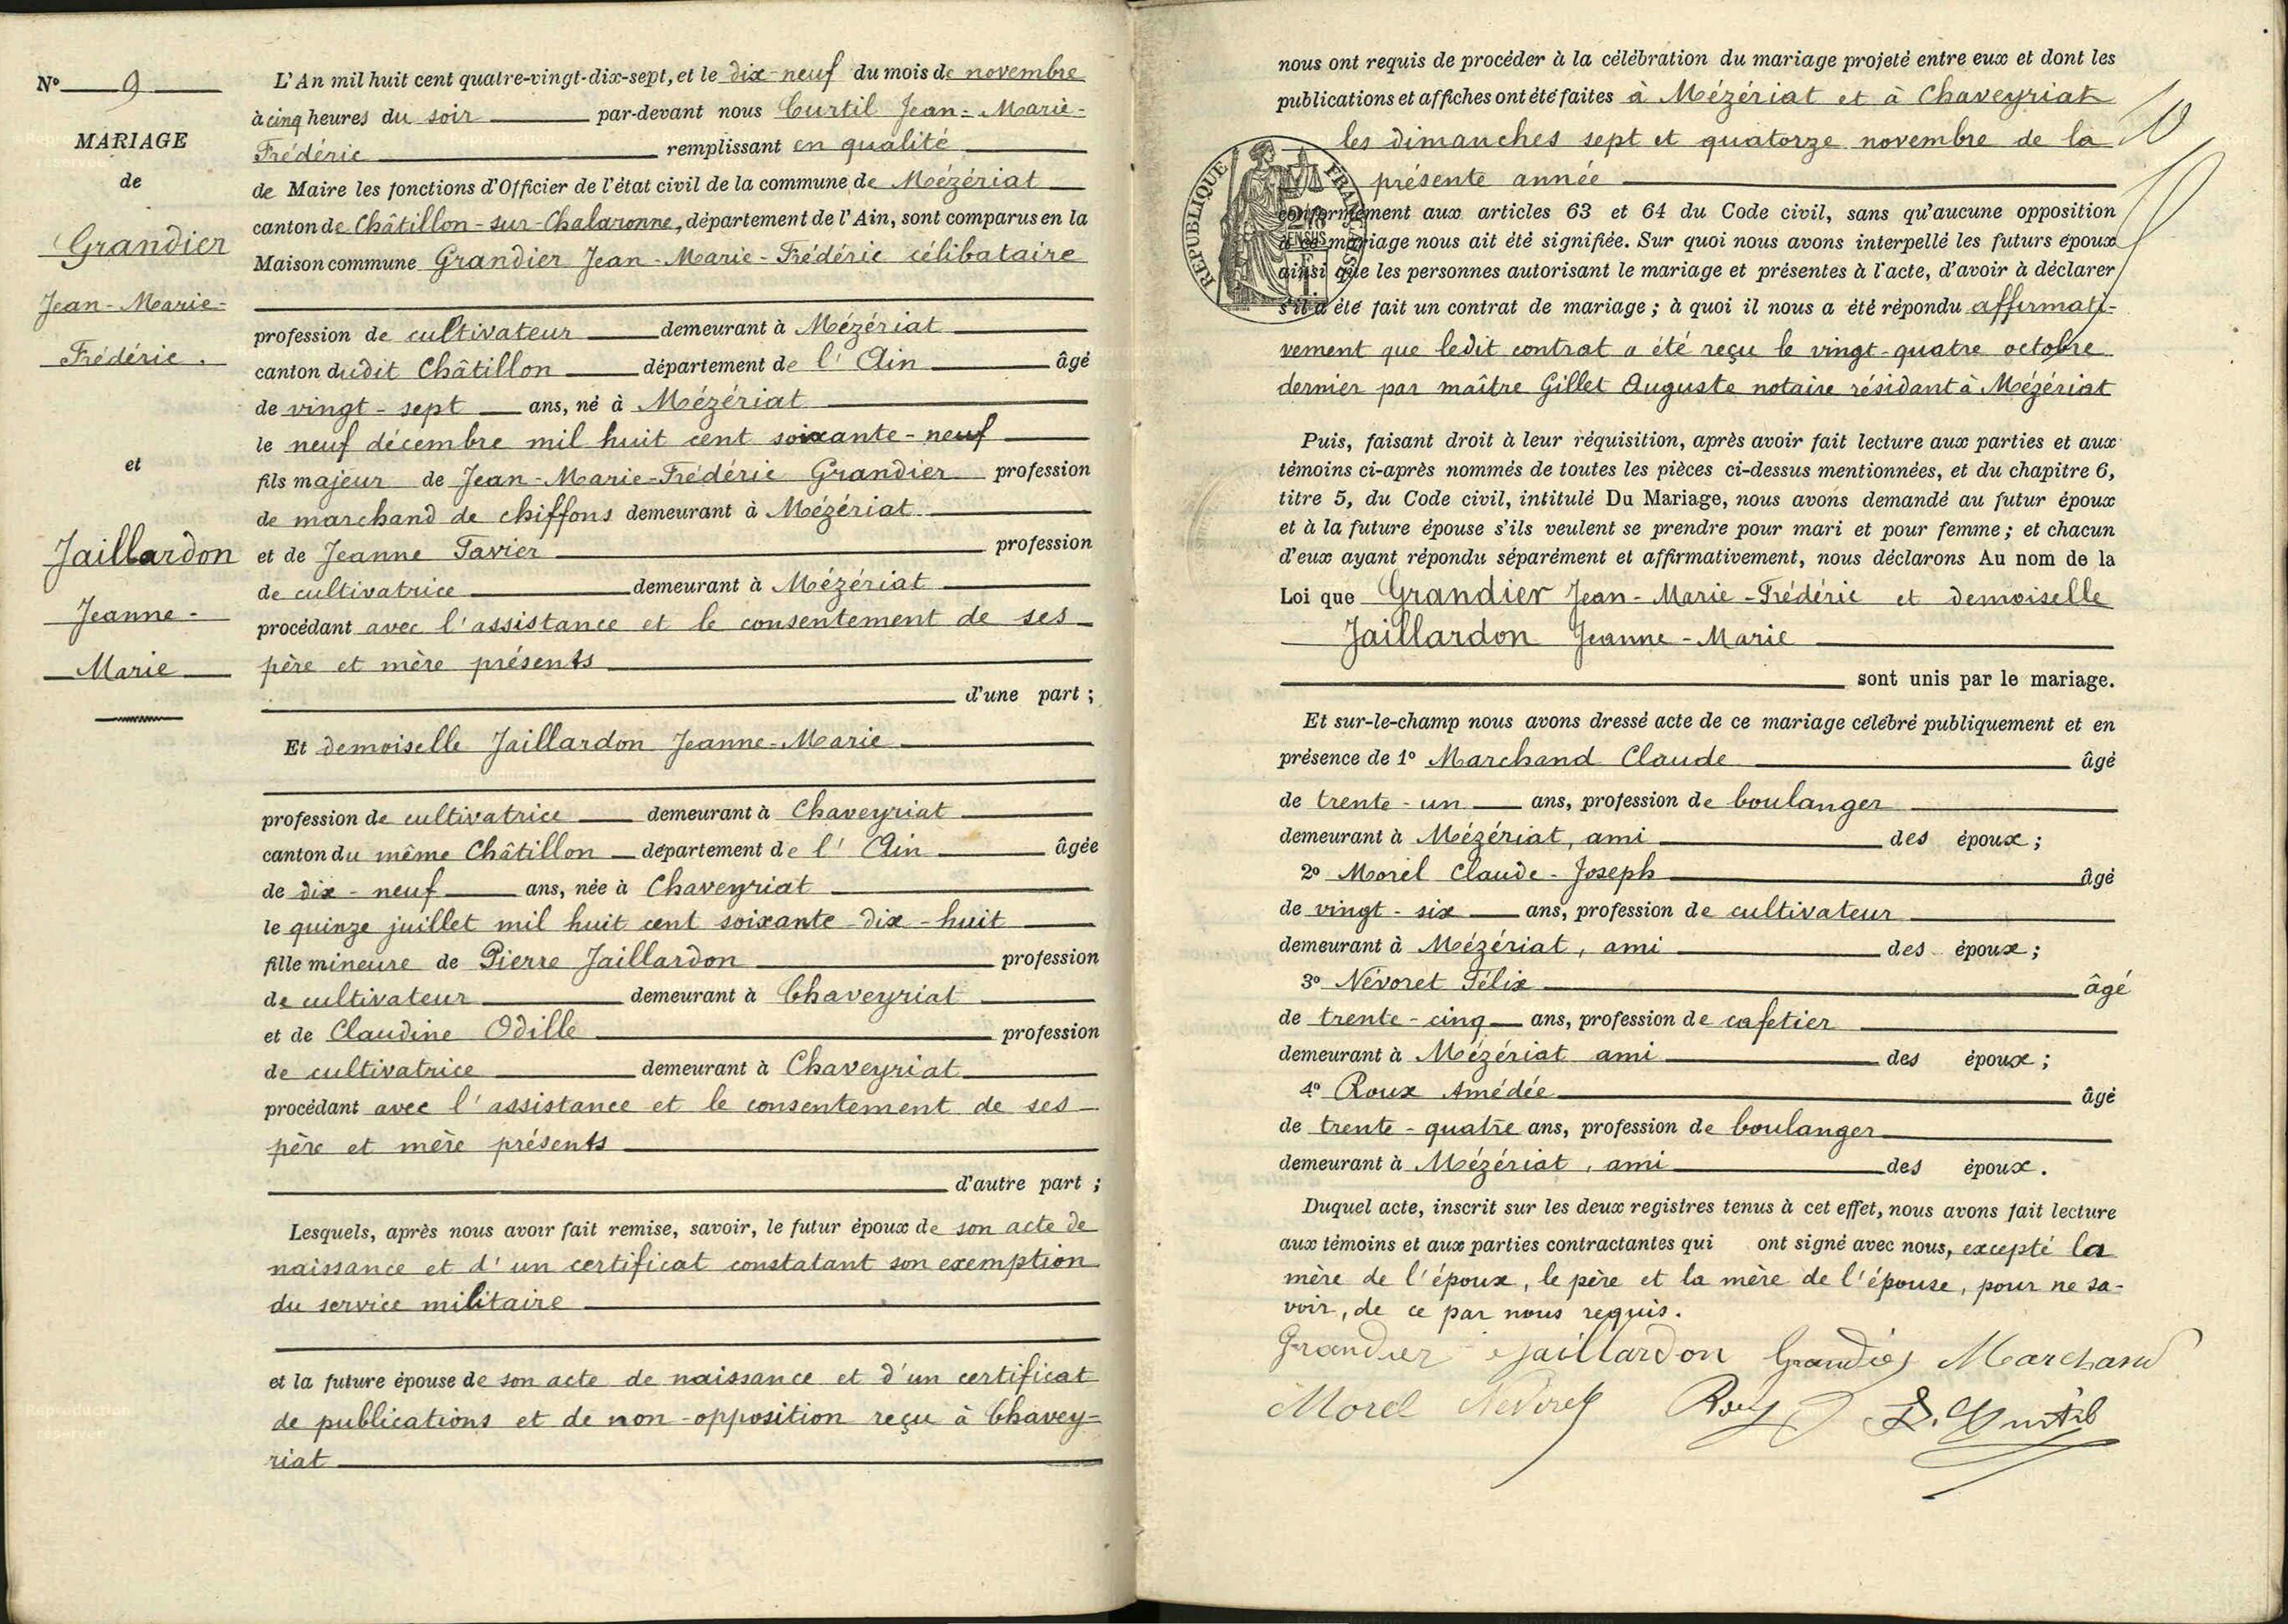 N° 9
MARIAGE
de
Grandier
Jean-Marie-
Frédéric.
et
Jaillardon
Jeanne-
Marie
L'An mil huit cent quatre-vingt-dix-sept, et le dix-neuf du mois de novembre
à cinq heures du soir par-devant nous Curtil Jean-Marie-
Frédéric remplissant en qualité
de Maire les fonctions d'Officier de l'état civil de la commune de Mézériat
canton de Châtillon-sur-Chalaronne, département de l'Ain, sont comparus en la
Maison commune Grandier Jean-Marie-Frédéric célibataire
profession de cultivateur demeurant à Mézériat
canton dudit Châtillon département de l'Ain âgé
de vingt-sept ans, né à Mézériat
le neuf décembre mil huit cent soixante-neuf
fils majeur de Jean-Marie-Frédéric Grandier profession
de marchand de chiffons demeurant à Mézériat
et de Jeanne Favier profession
de cultivatrice demeurant à Mézériat
procédant avec l'assistance et le consentement de ses
père et mère présents
d'une part;
Et demoiselle Jaillardon Jeanne-Marie
profession de cultivatrice demeurant à Chaveyriat
canton du même Châtillon département de l'Ain âgée
de dix-neuf ans, née à Chaveyriat
le quinze juillet mil huit cent soixante-dix-huit
fille mineure de Pierre Jaillardon profession
de cultivateur demeurant à Chaveyriat
et de Claudine Odille profession
de cultivatrice demeurant à Chaveyriat
procédant avec l'assistance et le consentement de ses
père et mère présents
d'autre part;
Lesquels, après nous avoir fait remise, savoir, le futur époux de son acte de
naissance et d'un certificat constatant son exemption
du service militaire
et la future épouse de son acte de naissance et d'un certificat
de publications et de non-opposition reçu à Chavey-
riat
nous ont requis de procéder à la célébration du mariage projeté entre eux et dont les
publications et affiches ont été faites à Mézériat et à Chaveyriat
les dimanches sept et quatorze novembre de la
présente année
RÉPUBLIQUE FRANÇAISE
conformément aux articles 63 et 64 du Code civil, sans qu'aucune opposition
à ce mariage nous ait été signifiée. Sur quoi nous avons interpellé les futurs époux
ainsi que les personnes autorisant le mariage et présentes à l'acte, d'avoir à déclarer
s'il a été fait un contrat de mariage; à quoi il nous a été répondu affirmati-
vement que ledit contrat a été reçu le vingt-quatre octobre
dernier par maître Gillet Auguste notaire résidant à Mézériat
Puis, faisant droit à leur réquisition, après avoir fait lecture aux parties et aux
témoins ci-après nommés de toutes les pièces ci-dessus mentionnées, et du chapitre 6,
titre 5, du Code civil, intitulé Du Mariage, nous avons demandé au futur époux
et à la future épouse s'ils veulent se prendre pour mari et pour femme; et chacun
d'eux ayant répondu séparément et affirmativement, nous déclarons Au nom de la
Loi que Grandier Jean-Marie-Frédéric et demoiselle
Jaillardon Jeanne-Marie
sont unis par le mariage.
Et sur-le-champ nous avons dressé acte de ce mariage célébré publiquement et en
présence de 1° Marchand Claude âgé
de trente-un ans, profession de boulanger
demeurant à Mézériat, ami des époux;
2° Morel Claude-Joseph âgé
de vingt-six ans, profession de cultivateur
demeurant à Mézériat, ami des époux;
3° Névoret Félix âgé
de trente-cinq ans, profession de cafetier
demeurant à Mézériat ami des époux;
4° Roux Amédée âgé
de trente-quatre ans, profession de boulanger
demeurant à Mézériat, ami des époux.
Duquel acte, inscrit sur les deux registres tenus à cet effet, nous avons fait lecture
aux témoins et aux parties contractantes qui ont signé avec nous, excepté la
mère de l'époux, le père et la mère de l'épouse, pour ne sa-
voir, de ce par nous requis.
Grandier Jaillardon Grandier Marchand
Morel Nevoret Roux Curtil